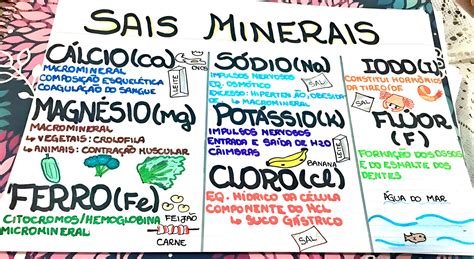 SAIS MINERAIS
CÁLCIO(ca)
MACROMINERAL
COMPOSIÇÃO ESQUELÉTICA
COAGULAÇÃO DO SANGUE
LEITE
MAGNÉSIO(mg)
MACROMINERAL
↳ VEGETAIS: CROLOFILA
↳ ANIMAIS: CONTRAÇÃO MUSCULAR
FERRO(Fe)
CITOCROMOS/HEMOGLOBINA
MICROMINERAL
FEIJÃO
CARNE
SÓDIO(Na)
IMPULSOS NERVOSOS
EQ. OSMÓTICO
EXCESSO: HIPERTENÃO, OBESIDA
DE
↳ MACROMINERAL
SAL
POTÁSSIO(K)
IMPULSOS NERVOSOS
ENTRADA E SAÍDA DE H2O
CÂIMBRAS
LEITE
BANANA
CLORO(Cl)
EQ. HÍDRICO DA CÉLULA
COMPONENTE DO HCL
↳ SUCO GÁSTRICO
SAL
IODO(I)
CONSTITUI HORMÔNIOS
DA TIREOIDE
SAL
FLÚOR
(F)
FORMAÇÃO DOS OSSOS
E DO ESMALTE DOS
DENTES
ÁGUA DO MAR